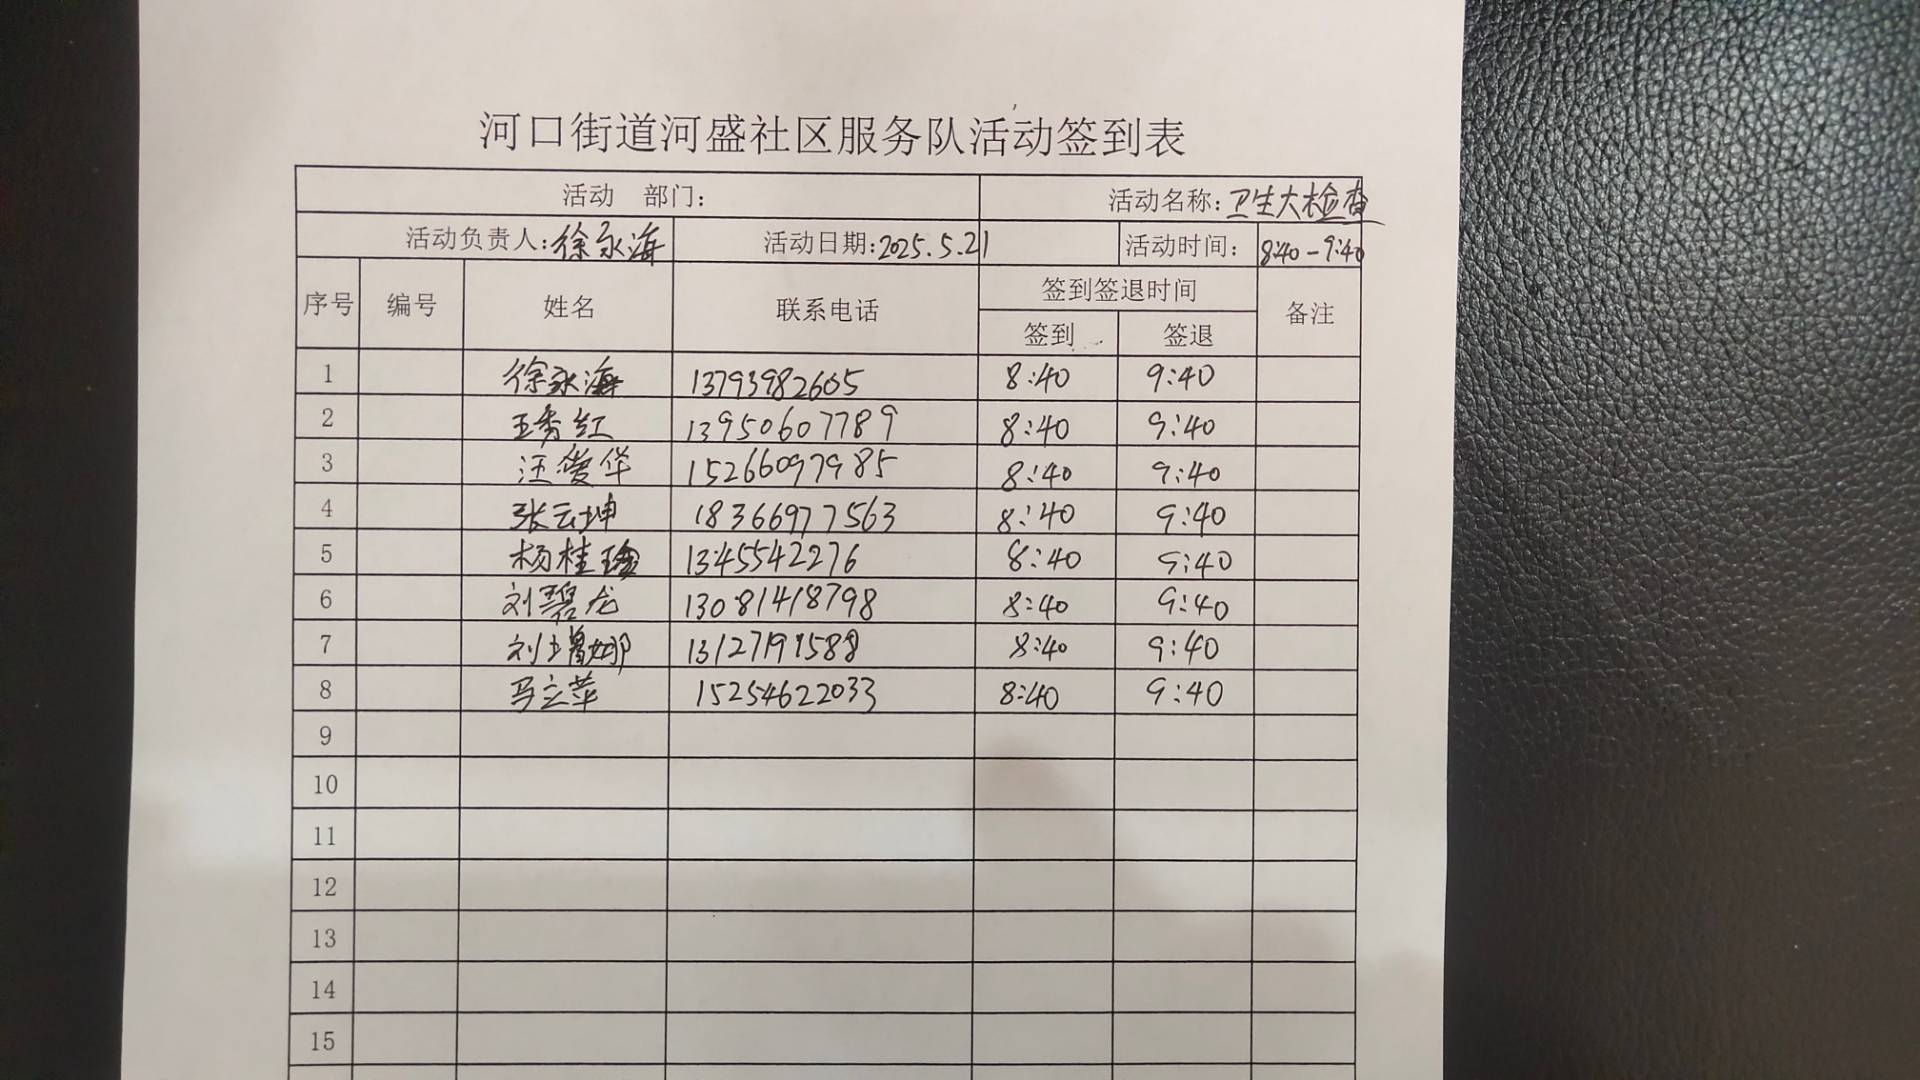 河口街道河盛社区服务队活动签到表
活动 部门: 活动名称: 卫生大检查
活动负责人: 徐永海 活动日期: 2025.5.21 活动时间: 8:40-9:40
序号 编号 姓名 联系电话 签到签退时间 备注
签到 签退
1 徐永海 13793982605 8:40 9:40
2 王秀红 13950607789 8:40 9:40
3 汪俊华 15266097985 8:40 9:40
4 张云坤 18366977563 8:40 9:40
5 杨桂 1345542276 8:40 9:40
6 刘碧龙 13081418798 8:40 9:40
7 刘 娜 8:40 9:40
8 马立苹 15254622033 8:40 9:40
9
10
11
12
13
14
15